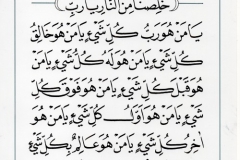 خَلِّصْنَا مِنَ النَّارِ يَا رَبِّ
يَا مَنْ هُوَ رَبُّ كُلِّ شَيْءٍ يَا مَنْ هُوَ خَالِقُ
كُلِّ شَيْءٍ يَا مَنْ هُوَ اِلٰهُ كُلِّ شَيْءٍ يَا مَنْ
هُوَ قَبْلَ كُلِّ شَيْءٍ يَا مَنْ هُوَ فَوْقَ كُلِّ
شَيْءٍ يَا مَنْ هُوَ اَوَّلُ كُلِّ شَيْءٍ يَا مَنْ هُوَ
اٰخِرُ كُلِّ شَيْءٍ يَا مَنْ هُوَ عَالِمٌ بِكُلِّ شَيْءٍ